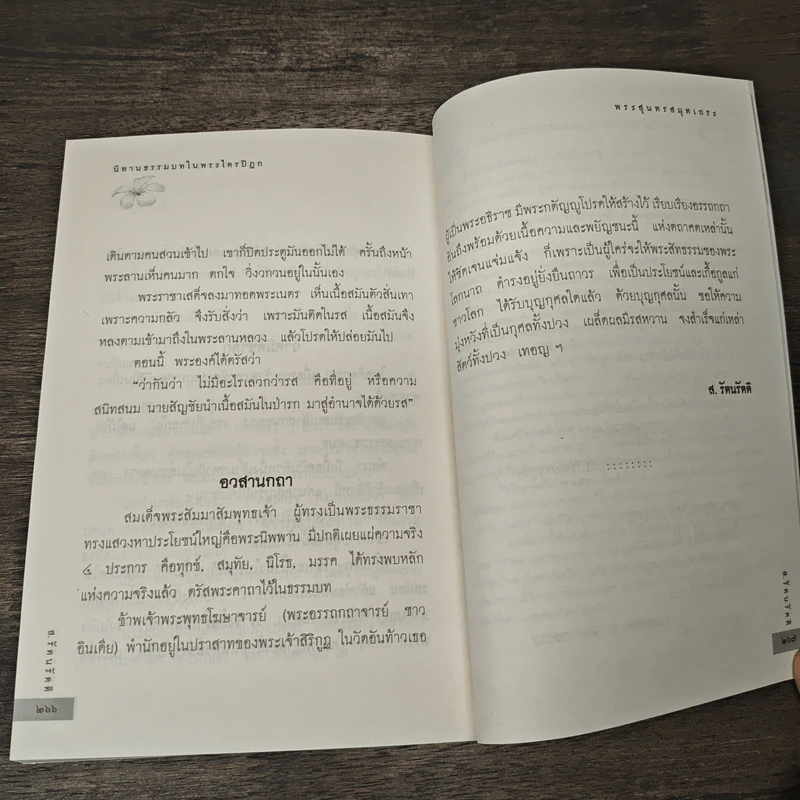 นิทานธรรมบทในพระไตรปิฎก
เดินตามคนสวนเข้าไป เขาก็ปิดประตูมันออกไม่ได้ ครั้นถึงหน้า
พระลานเห็นคนมาก ตกใจ วิ่งวกวนอยู่ในนั้นเอง
พระราชาเสด็จลงมาทอดพระเนตร เห็นเนื้อสมันตัวสั่นเทา
เพราะความกลัว จึงรับสั่งว่า เพราะมันติดในรส เนื้อสมันจึง
หลงตามเข้ามาถึงในพระลานหลวง แล้วโปรดให้ปล่อยมันไป
ตอนนี้ พระองค์ได้ตรัสว่า
“ว่ากันว่า ไม่มีอะไรเลวกว่ารส คือที่อยู่ หรือความ
สนิทสนม นายสัญชัยนำเนื้อสมันในป่ารก มาสู่อำนาจได้ด้วยรส”
อวสานกถา
สมเด็จพระสัมมาสัมพุทธเจ้า ผู้ทรงเป็นพระธรรมราชา
ทรงแสวงหาประโยชน์ใหญ่คือพระนิพพาน มีปกติเผยแผ่ความจริง
๔ ประการ คือทุกข์, สมุทัย, นิโรธ, มรรค ได้ทรงพบหลัก
แห่งความจริงแล้ว ตรัสพระคาถาไว้ในธรรมบท
ข้าพเจ้าพระพุทธโฆษาจารย์ (พระอรรถกถาจารย์ ชาว
อินเดีย) พำนักอยู่ในปราสาทของพระเจ้าสิริกูฏ ในวัดอันท้าวเธอ
ส. รัตนรัตติ
๒๖๖
พระสุนทรสมุทเถระ
ผู้เป็นพระอธิราช มีพระกตัญญูโปรดให้สร้างไว้ เรียบเรียงอรรถกถา
อันถึงพร้อมด้วยเนื้อความและพยัญชนะนี้ แห่งตถาคตเหล่านั้น
ให้ชัดเจนแจ่มแจ้ง ก็เพราะเป็นผู้ใคร่จะให้พระสัทธรรมของพระ
โลกนาถ ดำรงอยู่ยั่งยืนถาวร เพื่อเป็นประโยชน์และเกื้อกูลแก่
ชาวโลก ได้รับบุญกุศลใดแล้ว ด้วยบุญกุศลนั้น ขอให้ความ
มุ่งหวังที่เป็นกุศลทั้งปวง เผล็ดผลมีรสหวาน จงสำเร็จแก่เหล่า
สัตว์ทั้งปวง เทอญ ฯ
ส. รัตนรัตติ
ส. รัตนรัตติ